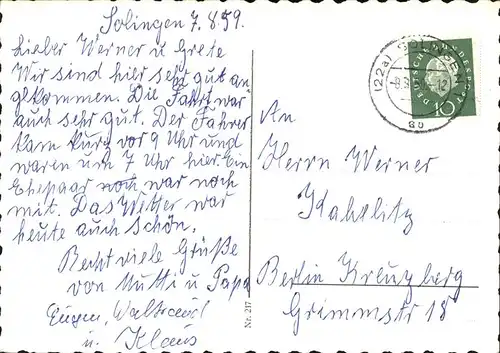 Solingen 7.8.59.
Lieber Werner u Grete
Wir sind hier sehr gut an
gekommen. Die Fahrt war
auch sehr gut. Der Fahrer
kam kurz vor 9 Uhr und
waren um 7 Uhr hier. Ein
Ehepaar noch war noch
mit. Das Wetter war
heute auch schön.
Recht viele Grüße
von Mutti u Papa
Eugen, Waltraud
u. Klaus
Nr. 217
(22a) SOLINGEN
DEUTSCHE BUNDESPOST
10
An
Herrn Werner
Kahlitz
Berlin Kreuzberg
Grimmstr 18